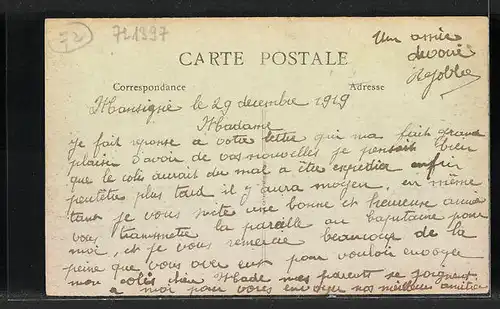 72
721397
Un amie
devoué
CARTE POSTALE
Correspondance
Adresse
Mansigné le 29 decembre 1919
Madame
Je fait reponse a votre lettre qui ma fait grand
plaisir d'avoir de vos nouvelles je pensait bien
que le colis aurait du mal a être expedier enfin
peutêtre plus tard il y aura moyen. en même
tant je vous suite une bonne et heureuse année
vous transmettre la pareille au Capitaine pour
moi, et je vous remercie beaucoup de la
peine que vous aver eut pour vouloir envoyer
mon colis chère Made mes parent se joignent
a moi pour vous envoyer nos meilleurs amitier